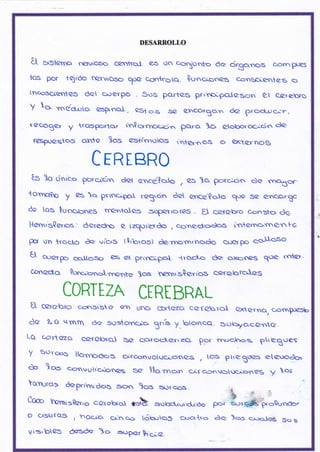 DESARROLLO
El sistema nervioso central es un conjunto de órganos compues
tos por tejido nervioso que controla funciones conscientes o
inconscientes del cuerpo. Sus partes principales son el cerebro
y la medula espinal, estos se encargan de producir,
recoger y trasportar información para la eloboración de
respuestos ante los estímulos internos o externos
CEREBRO
Es la única porción del encefalo, es la porción de mayor
tamaño y es la principal región del encefalo que se encarga
de las funciones mentales superiores. El cerebro consta de
Hemisferios: derecho e izquierdo, conectados internamente
por un tracto de vías (fibras) denominado cuerpo calloso
El cuerpo calloso es el principal tracto de axones que inter-
conecta funcionalmente los hemisferios cerebrales
CORTEZA CEREBRAL
El cerebro consiste en una corteza cerebral externa, compuesta
de 2 a 4mm de sustancia gris y blanca subyacente.
La corteza cerebral se caracteriza por muchos pliegues
y surcos llamados circonvoluciones, los pliegues elevados
de las convoluciones se llaman circonvoluciones y las
ranuras deprimidas son las surcos.
Cada hemisferio cerebral está subdividido por surcos profundos
o cisuras, hacia cinco lóbulos cuatro de los cuales sus
visibles desde la superficie.